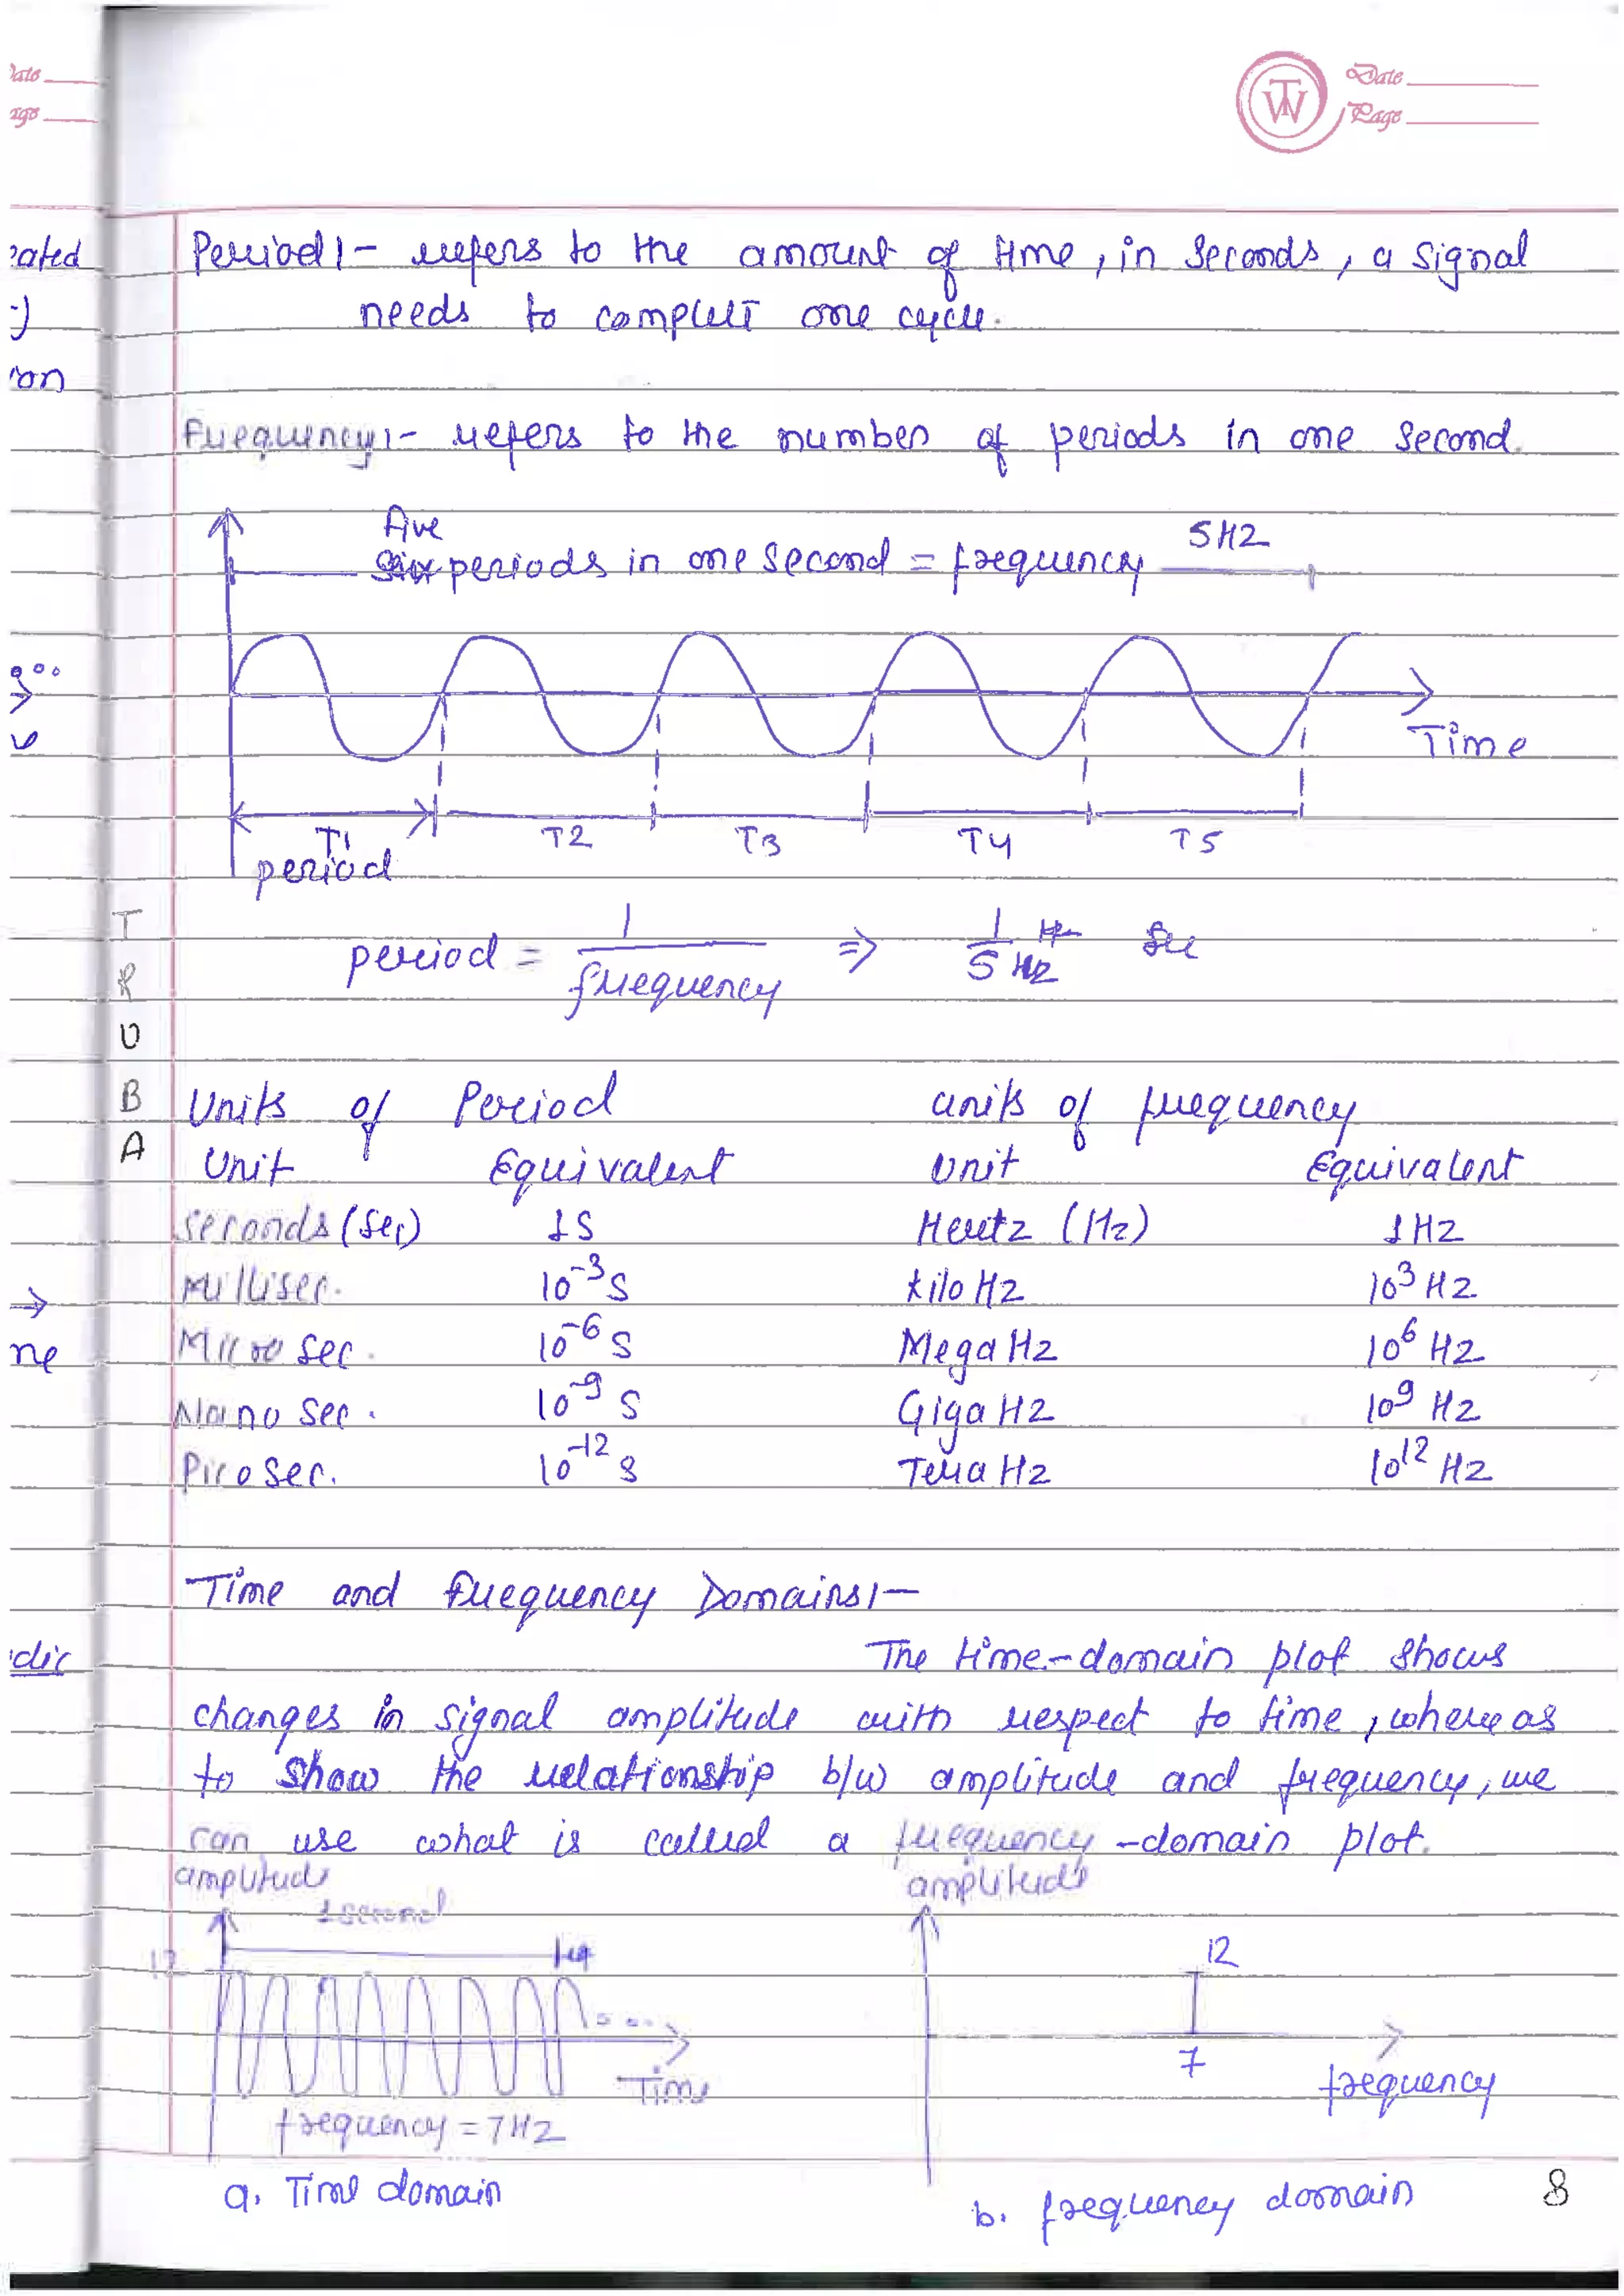 Date
Page
ated
Period :- refers to the amount of time, in seconds, a signal
needs to complete one cycle.
on
Frequency :- refers to the number of periods in one second.
Five
periods in one second = frequency 5 Hz
Time
T1 T2 T3 T4 T5
period
period = 1/frequency => 1/5 Hz Sec
T
R
U
B
A
Units of Period units of frequency
Unit Equivalent Unit Equivalent
Seconds (Sec) 1 S Hertz (Hz) 1 Hz
Millisec. 10^-3 S kilo Hz 10^3 Hz
Micro Sec. 10^-6 S Mega Hz 10^6 Hz
Nano Sec. 10^-9 S Giga Hz 10^9 Hz
Pico Sec. 10^-12 S Tera Hz 10^12 Hz
ne
Time and Frequency Domains :-
dic
The time-domain plot shows
changes in signal amplitude with respect to time, where as
to show the relationship b/w amplitude and frequency, we
can use what is called a frequency-domain plot.
amplitude amplitude
1 second
12 12
Time 7 frequency
frequency = 7 Hz
a. Time domain b. frequency domain
8